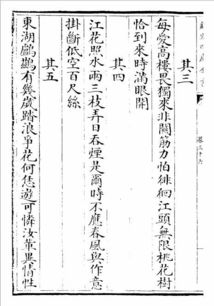 其三
每愛高樓畏獨來非關筋力怕徘徊江頭無限桃花樹
恰到來時滿眼開
其四
江花照水兩三枝弄日吞煙是爾時不應春風與作意
掛斷低空百尺絲
其五
東湖鸕鷀有幾歲踏浪爭花何恁遊可憐汝輩異情性